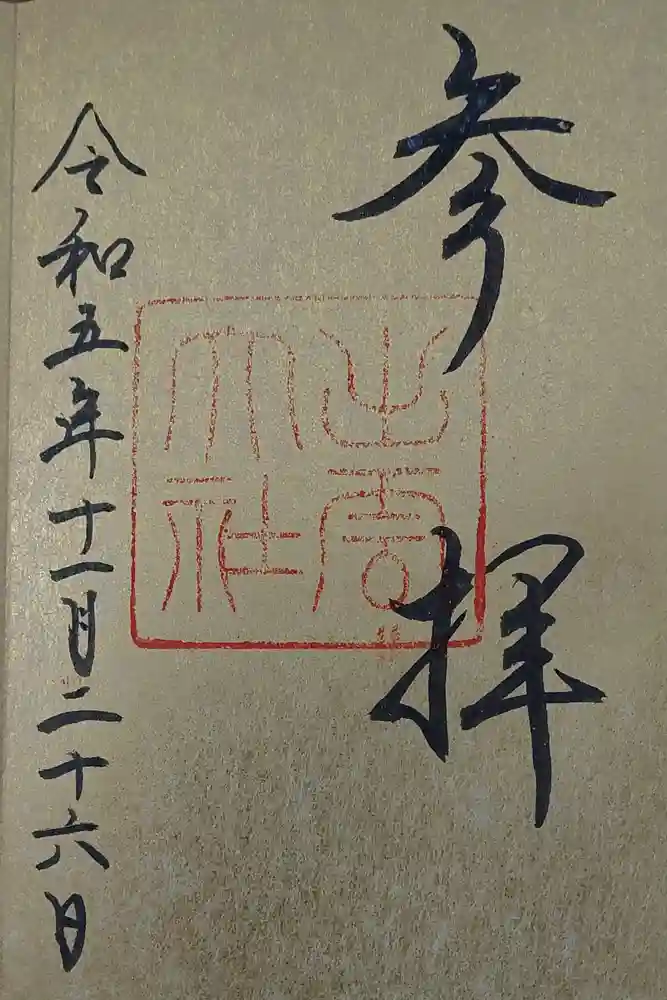 参拝
出雲
大社
令和五年十一月二十六日